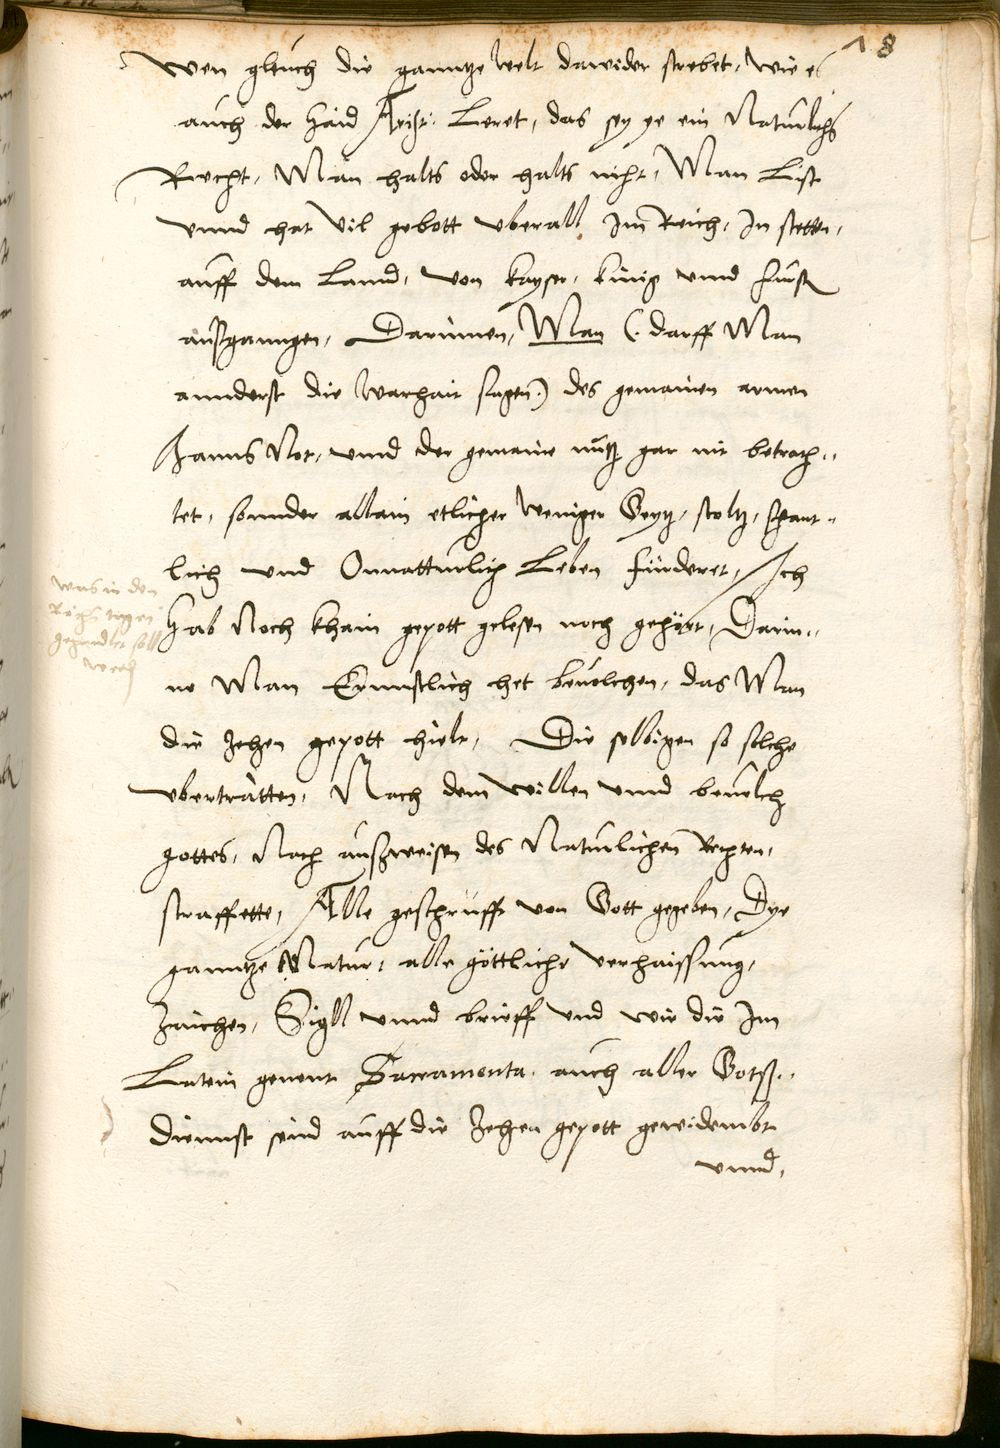 18
Wen gleich die ganntze welt dawider strebet, wie es
auch der Haid Arist: Leret, das sey ye ein Naturlichs
Recht, Man halts oder halts nicht, Man List
vnnd hat vil gebott vberall Im Reich, In stetten,
auff dem Lannd, von kayser, künig vnnd fürst
außganngen, Darinnen, Man (: darff Man
annderst die Warhait sagen:) des gemainen armen
Hanns Not, vnnd der gemaine nutz gar nit betrach-
tet, sonnder allain etlicher weniger Geytz, stoltz, schant-
lich vnd Onnatturlich Leben fürderet, Ich
Hab Noch khain gepott gelesen noch gehört, Darin-
ne Man Ernnstlich het beuolchen, das Man
die zehen gepott hielt, Die selbigen so solche
vbertratten, Nach dem willen vnnd beuelch
gottes, Nach außweisen des Naturlichen Rechten,
straffette, Alle geschrifft von Gott gegeben, Dye
ganntze Natur, alle göttliche verhaissung,
Zaichen, Sigll vnnd brieff vnd wie die Im
Latein genent Sacramenta, auch aller Gotß-
dienst seind auff die zehen gepott gewidembt
vnnd,
was in den
gehandlet soll